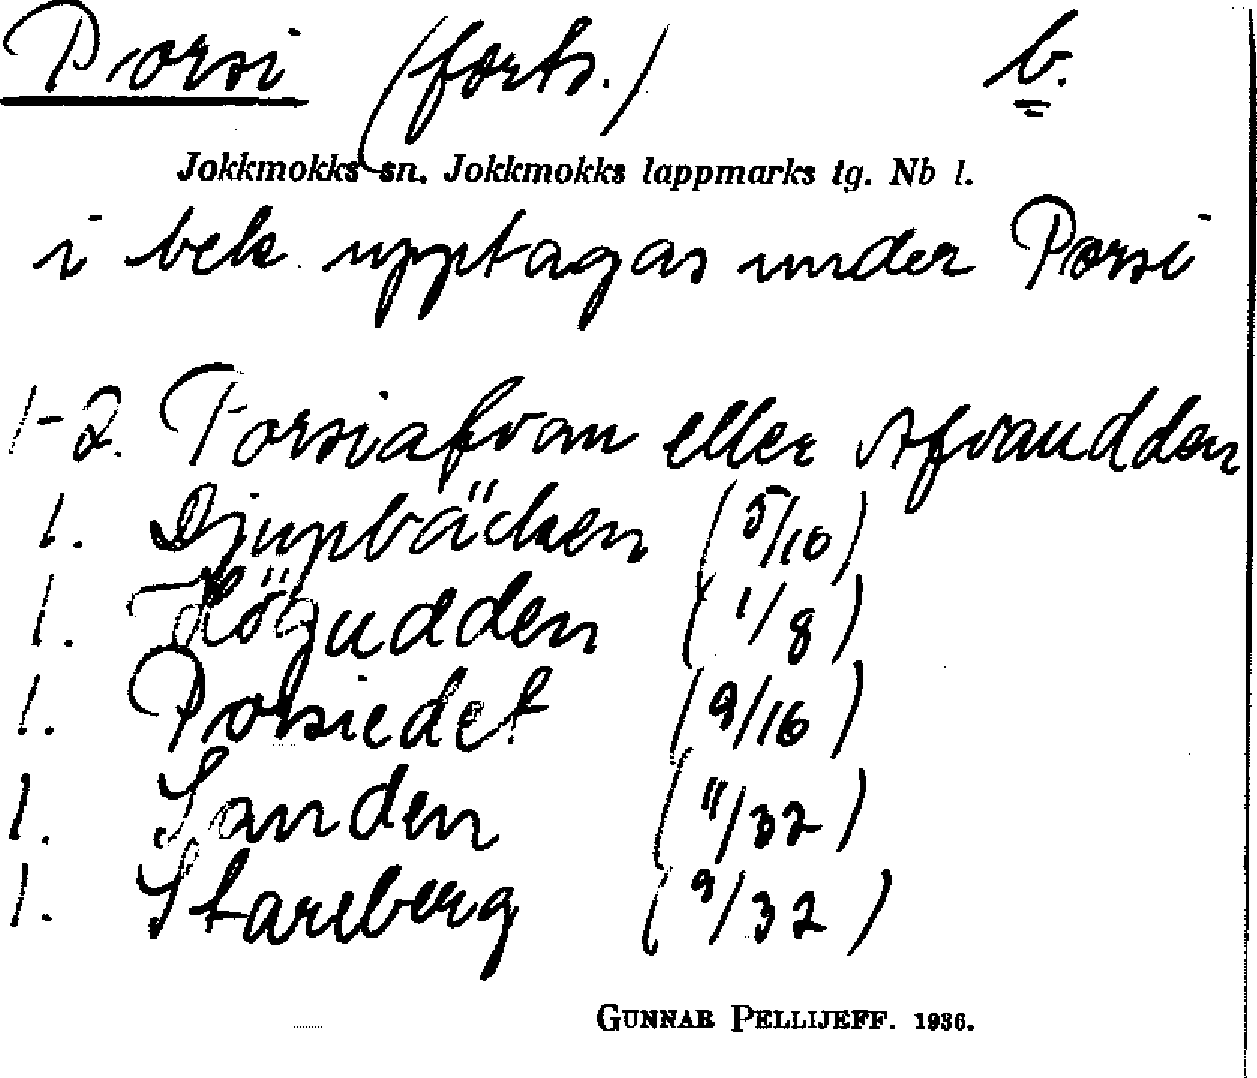 Porsi (forts.) b.
Jokkmokks sn. Jokkmokks lappmarks tg. Nb l.
i bek. upptagas under Porsi
1-2. Forsiafvan eller Afvaudden
1. Djupbäcken (5/16)
1. Högudden (1/8)
1. Porsiedet (9/16)
1. Sanden (11/32)
1. Stareberg (9/32)
GUNNAR PELLIJEFF. 1936.